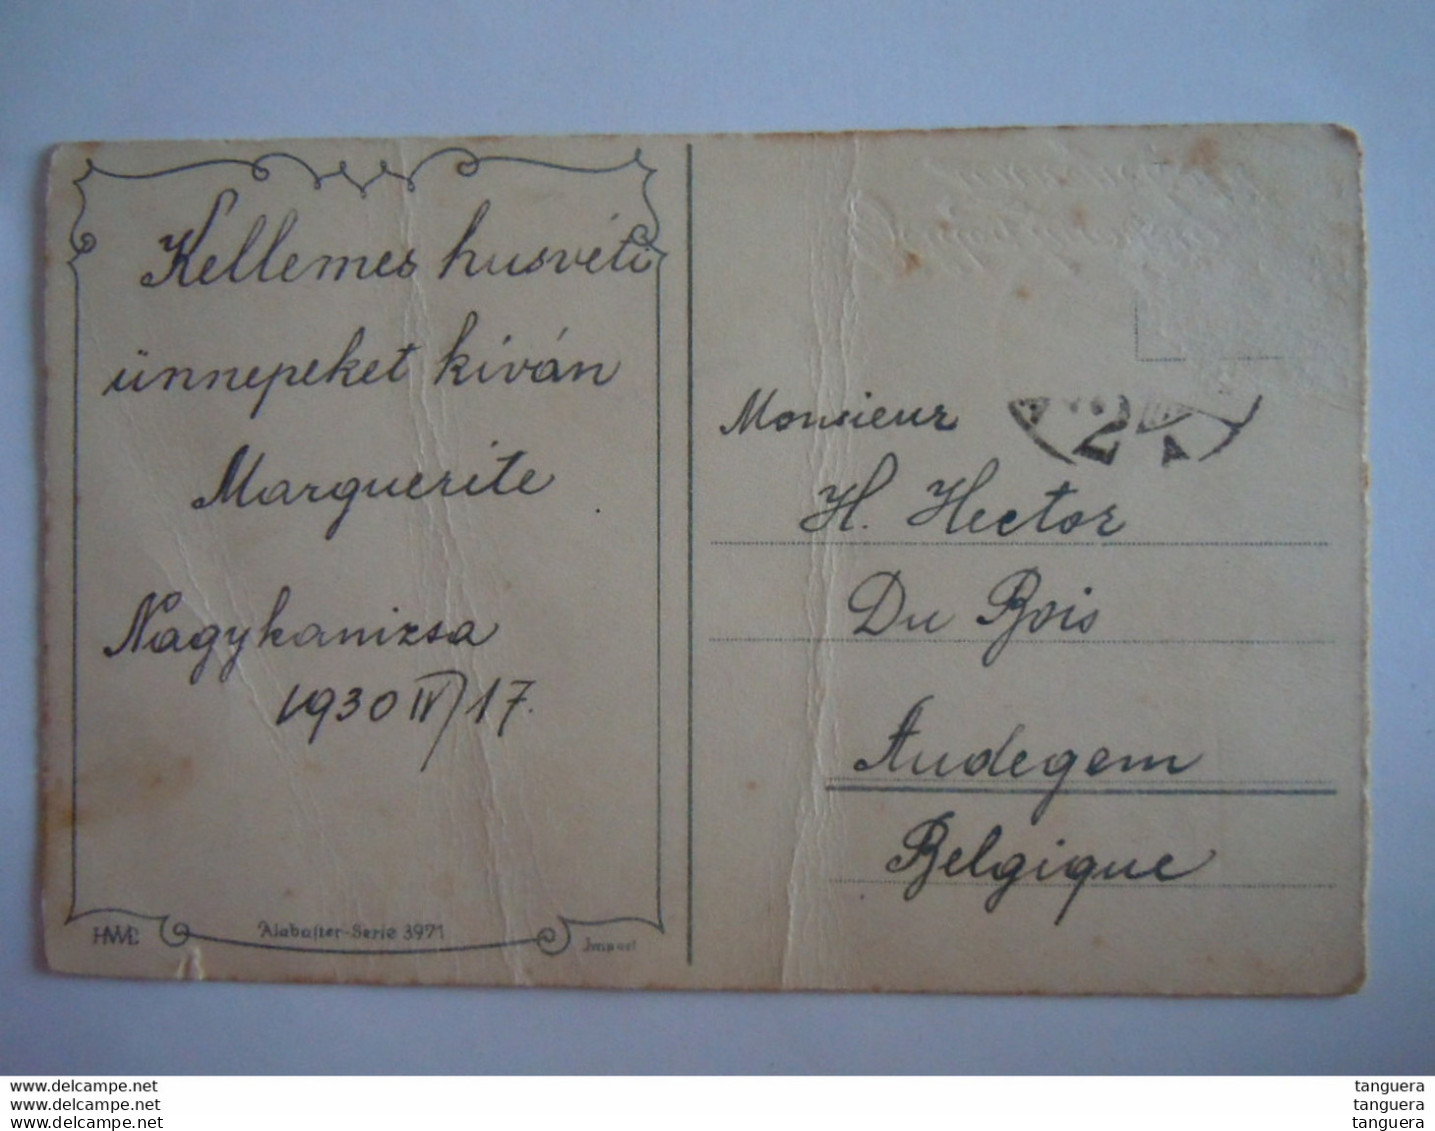 Kellemes husvéti
ünnepeket kíván
Marguerite
Nagykanizsa
1930 IV/17.
HWB
Alabaster-Serie 3971
Import
Monsieur
H. Hector
Du Bois
Audegem
Belgique
2
A
www.delcampe.net
www.delcampe.net
www.delcampe.net
tanguera
tanguera
tanguera